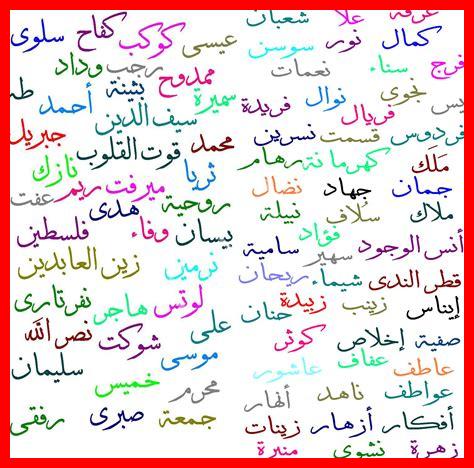 عرفة علا شعبان
كمال نور سوسن
فرج سناء نعمات
يس نجوى نوال فريدة
فريال
فردوس قسمت نسرين
مَلَك كهرمانة رهام
جمان جهاد نضال
ملاك سلاف نبيلة
فؤاد
أنس الوجود سهير سامية
قطر الندى شيماء ريحان
إيناس زينب زبيدة حنان
صفية إخلاص كوثر
عاطف عفاف عاشور
عواطف ناهد أنهار
أفكار أزهار زينات
زهرة نشوى منيرة
عيسى كوكب كفاح سلوى
رجب وداد
سميرة ممدوح بثينة أحمد طه
سيف الدين جبريل
محمد قوت القلوب نازك
ثريا ميرفت ريم عفت
روحية هدى
بيسان وفاء فلسطين
نرمين زين العابدين
لوتس هاجر نفرتارى
على شوكت نصر الله
موسى سليمان
محرم خميس
جمعة صبرى رفقى